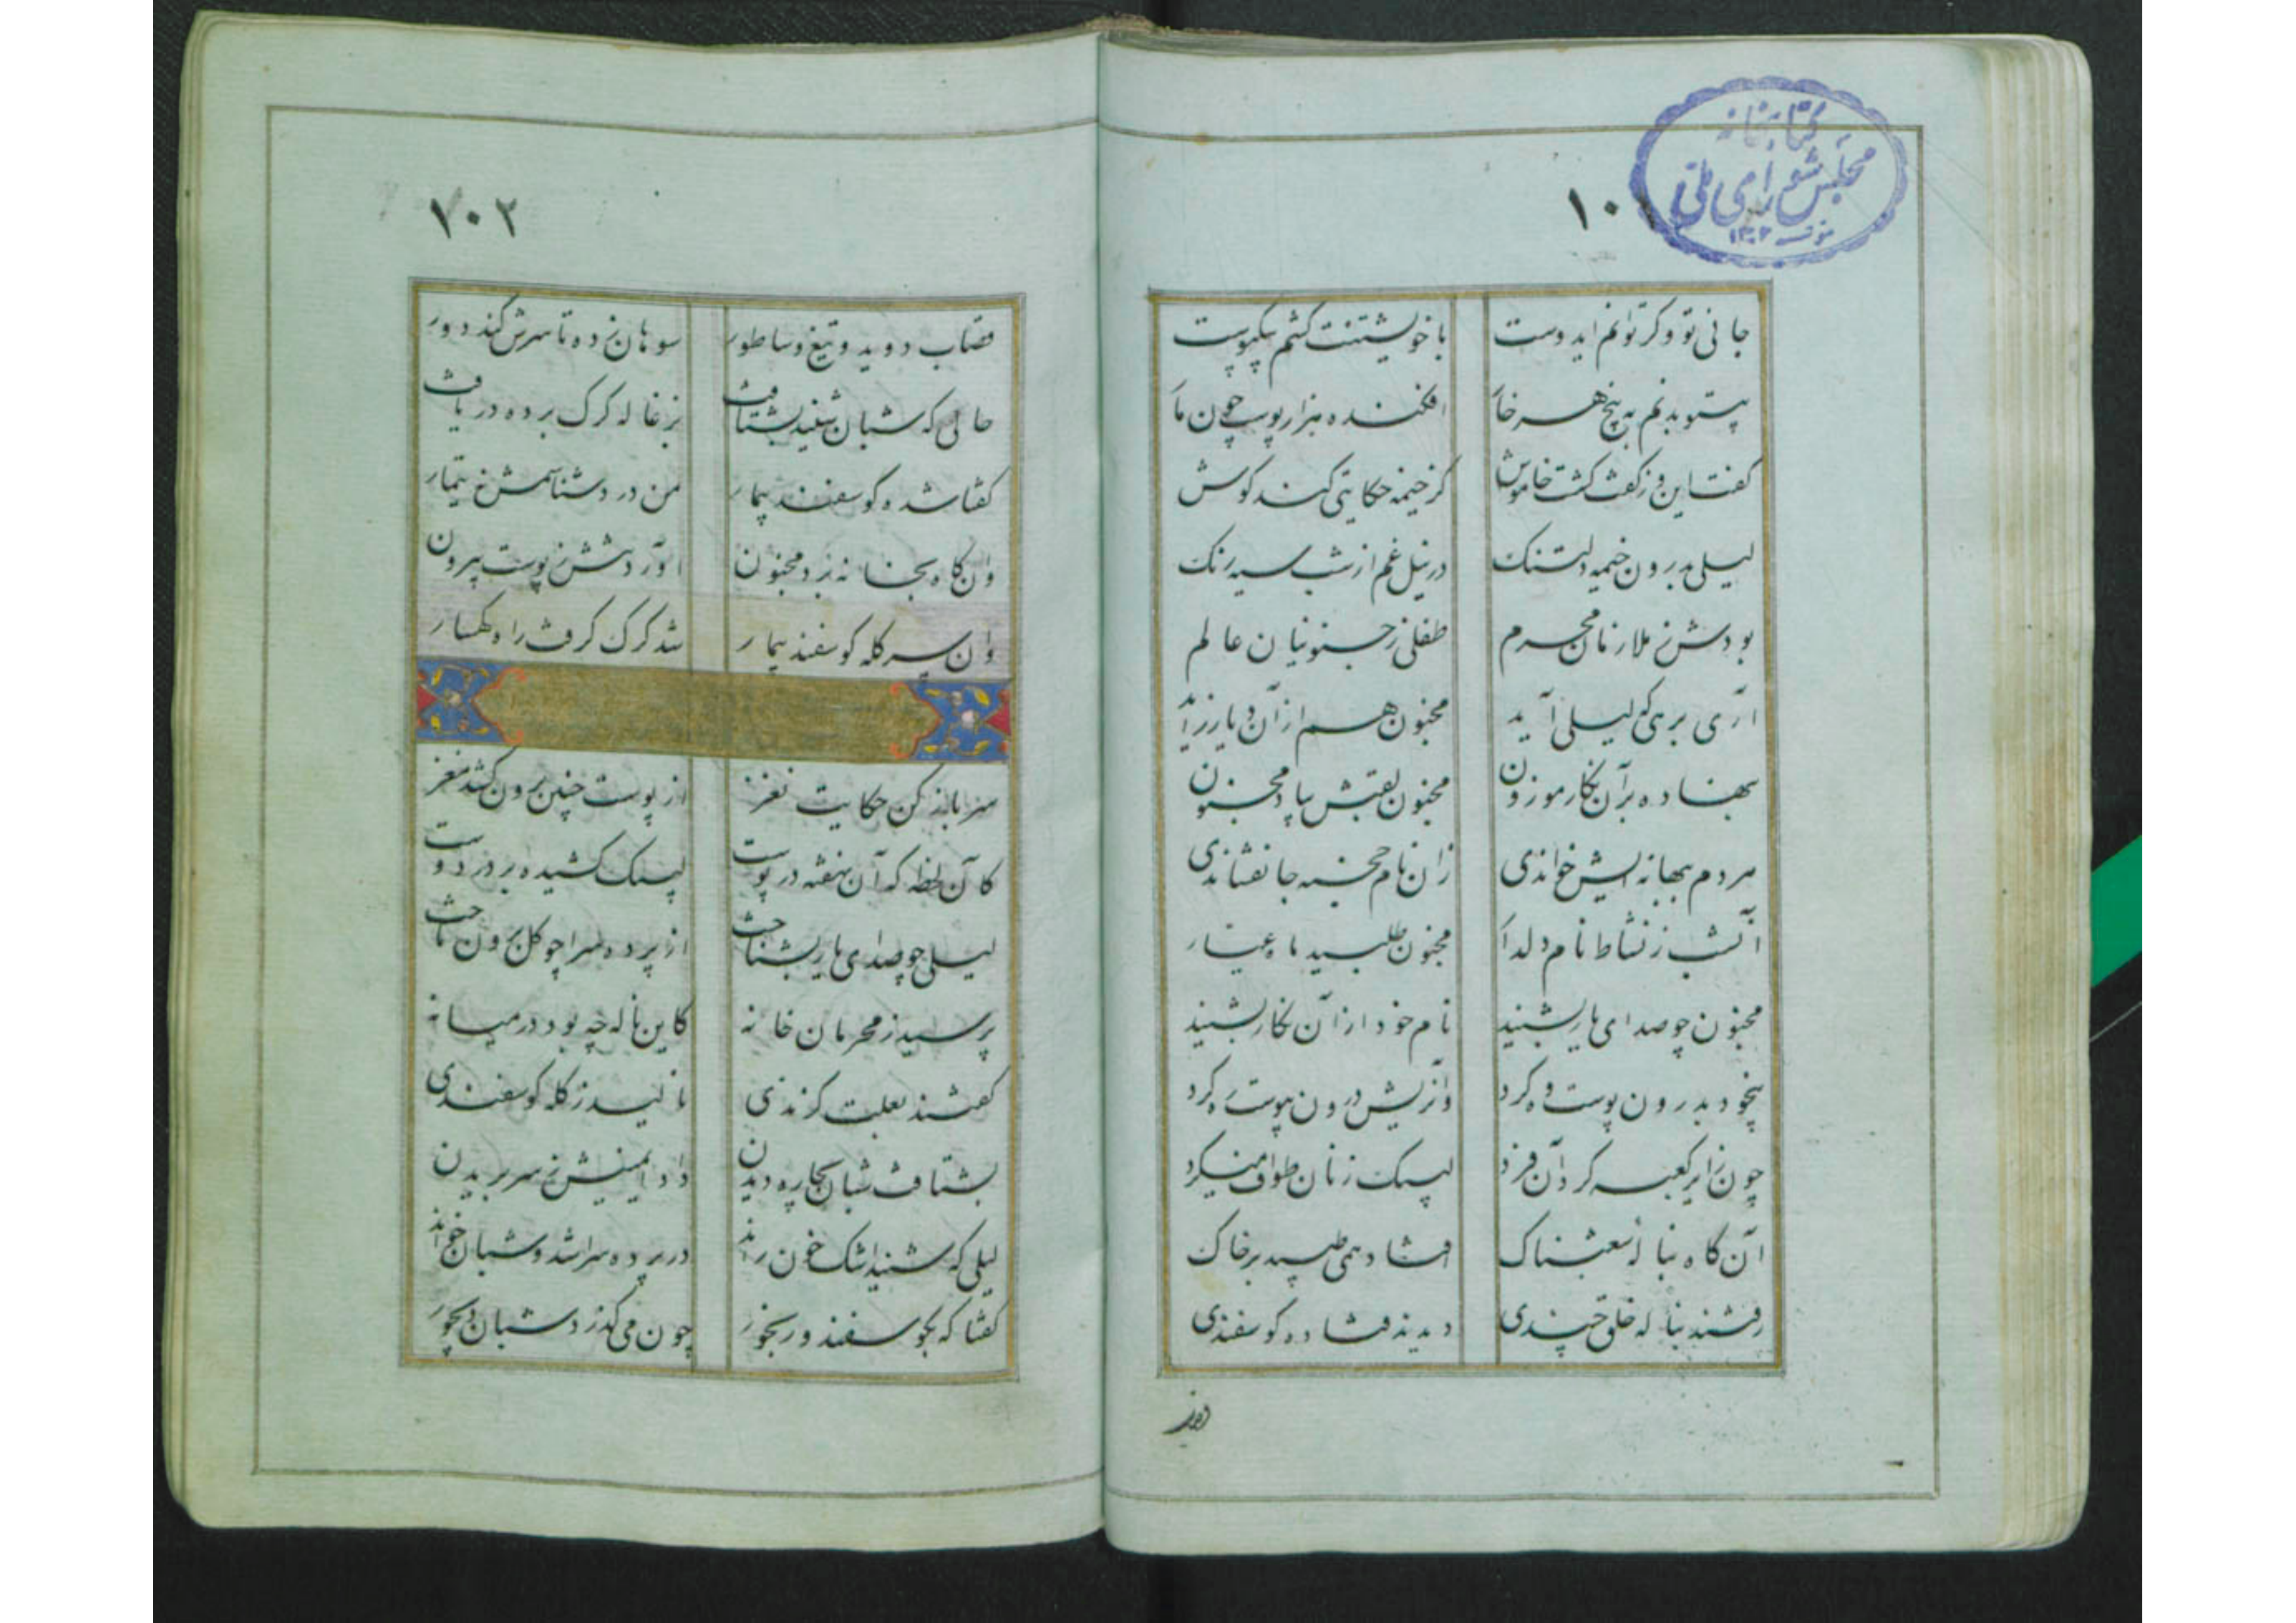 کتابخانه
مجلس شورای ملی
۱۳۰۲
۱۰
جانی تو و کر توانم ایدوست با خویشتنت کشم بیکپوست
افکنده هزار پوست چون
کفت این و ز کفت کشت خاموش کز خیمه حکایتی کند کوش
لیلی بدرون خیمه دلتنک در نیل غم از شب سیه رنک
بودش ز ملازمان محرم طفلی ز جنونیان عالم
آری بر هر که لیلی آید مجنون هم از آن دیار زاید
بنهاده بر آن نکار موزون مجنون لقبش بیاد مجنون
مردم ببهانه ایش خواندی زان نام خجسته جانفشاندی
آنشب ز نشاط نام دلدار مجنون طلبید
مجنون چو صدای یار بشنید نام خود از آن نکار بشنید
بیخود بدرون پوست وه کرد
چون زایر کعبه کرد آن فرد لبیک زنان طواف میکرد
آن کاه بناله شغبناک افتاد و همی طپید بر خاک
رفتند بناله خلق چندی دیدند فتاده کوسفندی
۱۰۲
قصاب دوید و تیغ و ساطور سوهان زده تا سرش کند دور
حالی که شبان شنید بشتافت بزغاله کرک برده دریافت
کفتا شده کوسفند بیمار من درد شناسمش ز تیمار
وان کاه بخانه برد مجنون آوردش ز پوست بیرون
وان سر کله کوسفند بیمار شد کرک کرفت راه کهسار
سر باز کن حکایت نغز از پوست چنین برون کشد مغز
کآن لحظه که آن نهفته در پوست لبیک کشیده بر در دوست
لیلی چو صدای یار بشناخت از پرده سرا چو کل برون تاخت
پرسید ز محرمان خانه کاین ناله چه بود در میانه
کفتند بعلت کزندی نالید ز کله کوسفندی
بشتافت شبان بچاره دیدن داد ایمنیش ز سر بریدن
لیلی که شنید اشک خون راند در پرده سرا شد و شبان خواند
کفتا که بجو سفند رنجور چون می کذرد شبان دیجور